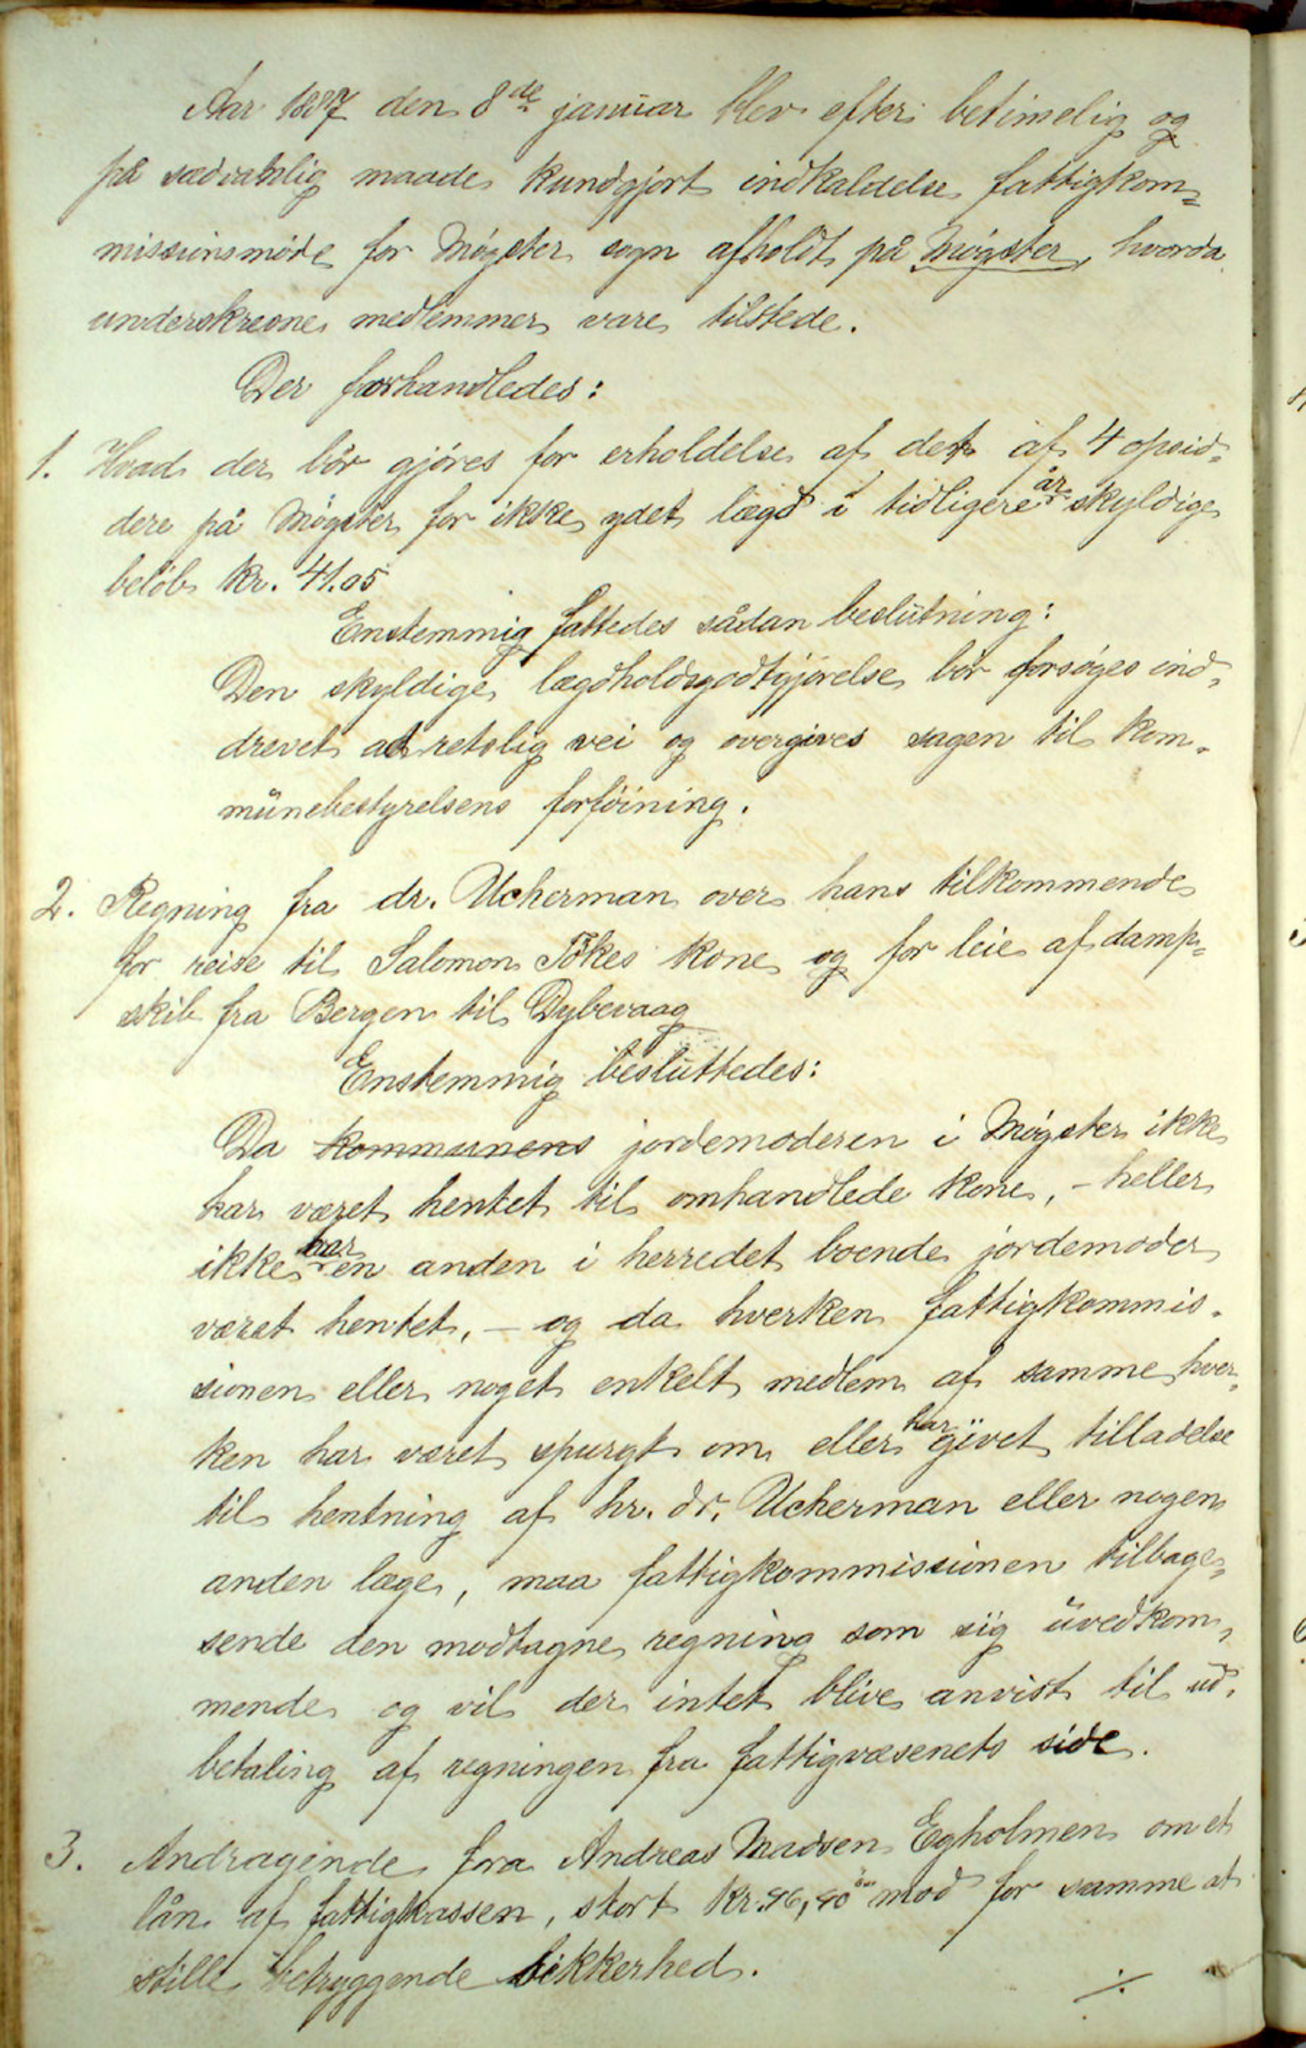 Aar 1887 den 8de januar blev efter betimelig og
på sædvanlig maade kundgjort indkaldelse fattigkom=
missionsmöde for Møgster sogn afholdt på Møgster, hvorda
underskrevne medlemmer vare tilstede.
Der forhandledes:
1. Hvad der bör gjöres for erholdelse af det af 4 opsid=
dere på Møgster for ikke ydet lægd i tidligere år skyldige
belöb kr. 41.05
Enstemmig fattedes sådan beslutning:
Den skyldige lægdholdsgodtgjørelse bör forsøges ind=
drevet ad retslig vei og overgives sagen til kom=
munebestyrelsens forföining.
2. Regning fra dr. Ucherman over hans tilkommende
for reise til Salomon Tökes kone og for leie af damp=
skib fra Bergen til Dybevaag
Enstemmig besluttedes:
Da kommunens jordemoderen i Møgster ikke
har været hentet til omhandlede kone, - heller
ikke har en anden i herredet boende jordemoder
været hentet, - og da hverken fattigkommis=
sionen eller noget enkelt medlem af samme hver=
ken har været spurgt om eller har givet tilladelse
til hentning af hr. dr. Ucherman eller nogen
anden læge, maa fattigkommissionen tilbage=
sende den modtagne regning som sig uvedkom=
mende og vil der intet blive anvist til ud=
betaling af regningen fra fattigvæsenets side.
3. Andragende fra Andreas Madsen Egholmen om et
lån af fattigkassen, stort kr. 96,90 mod for samme at
stille betryggende sikkerhed.
./.